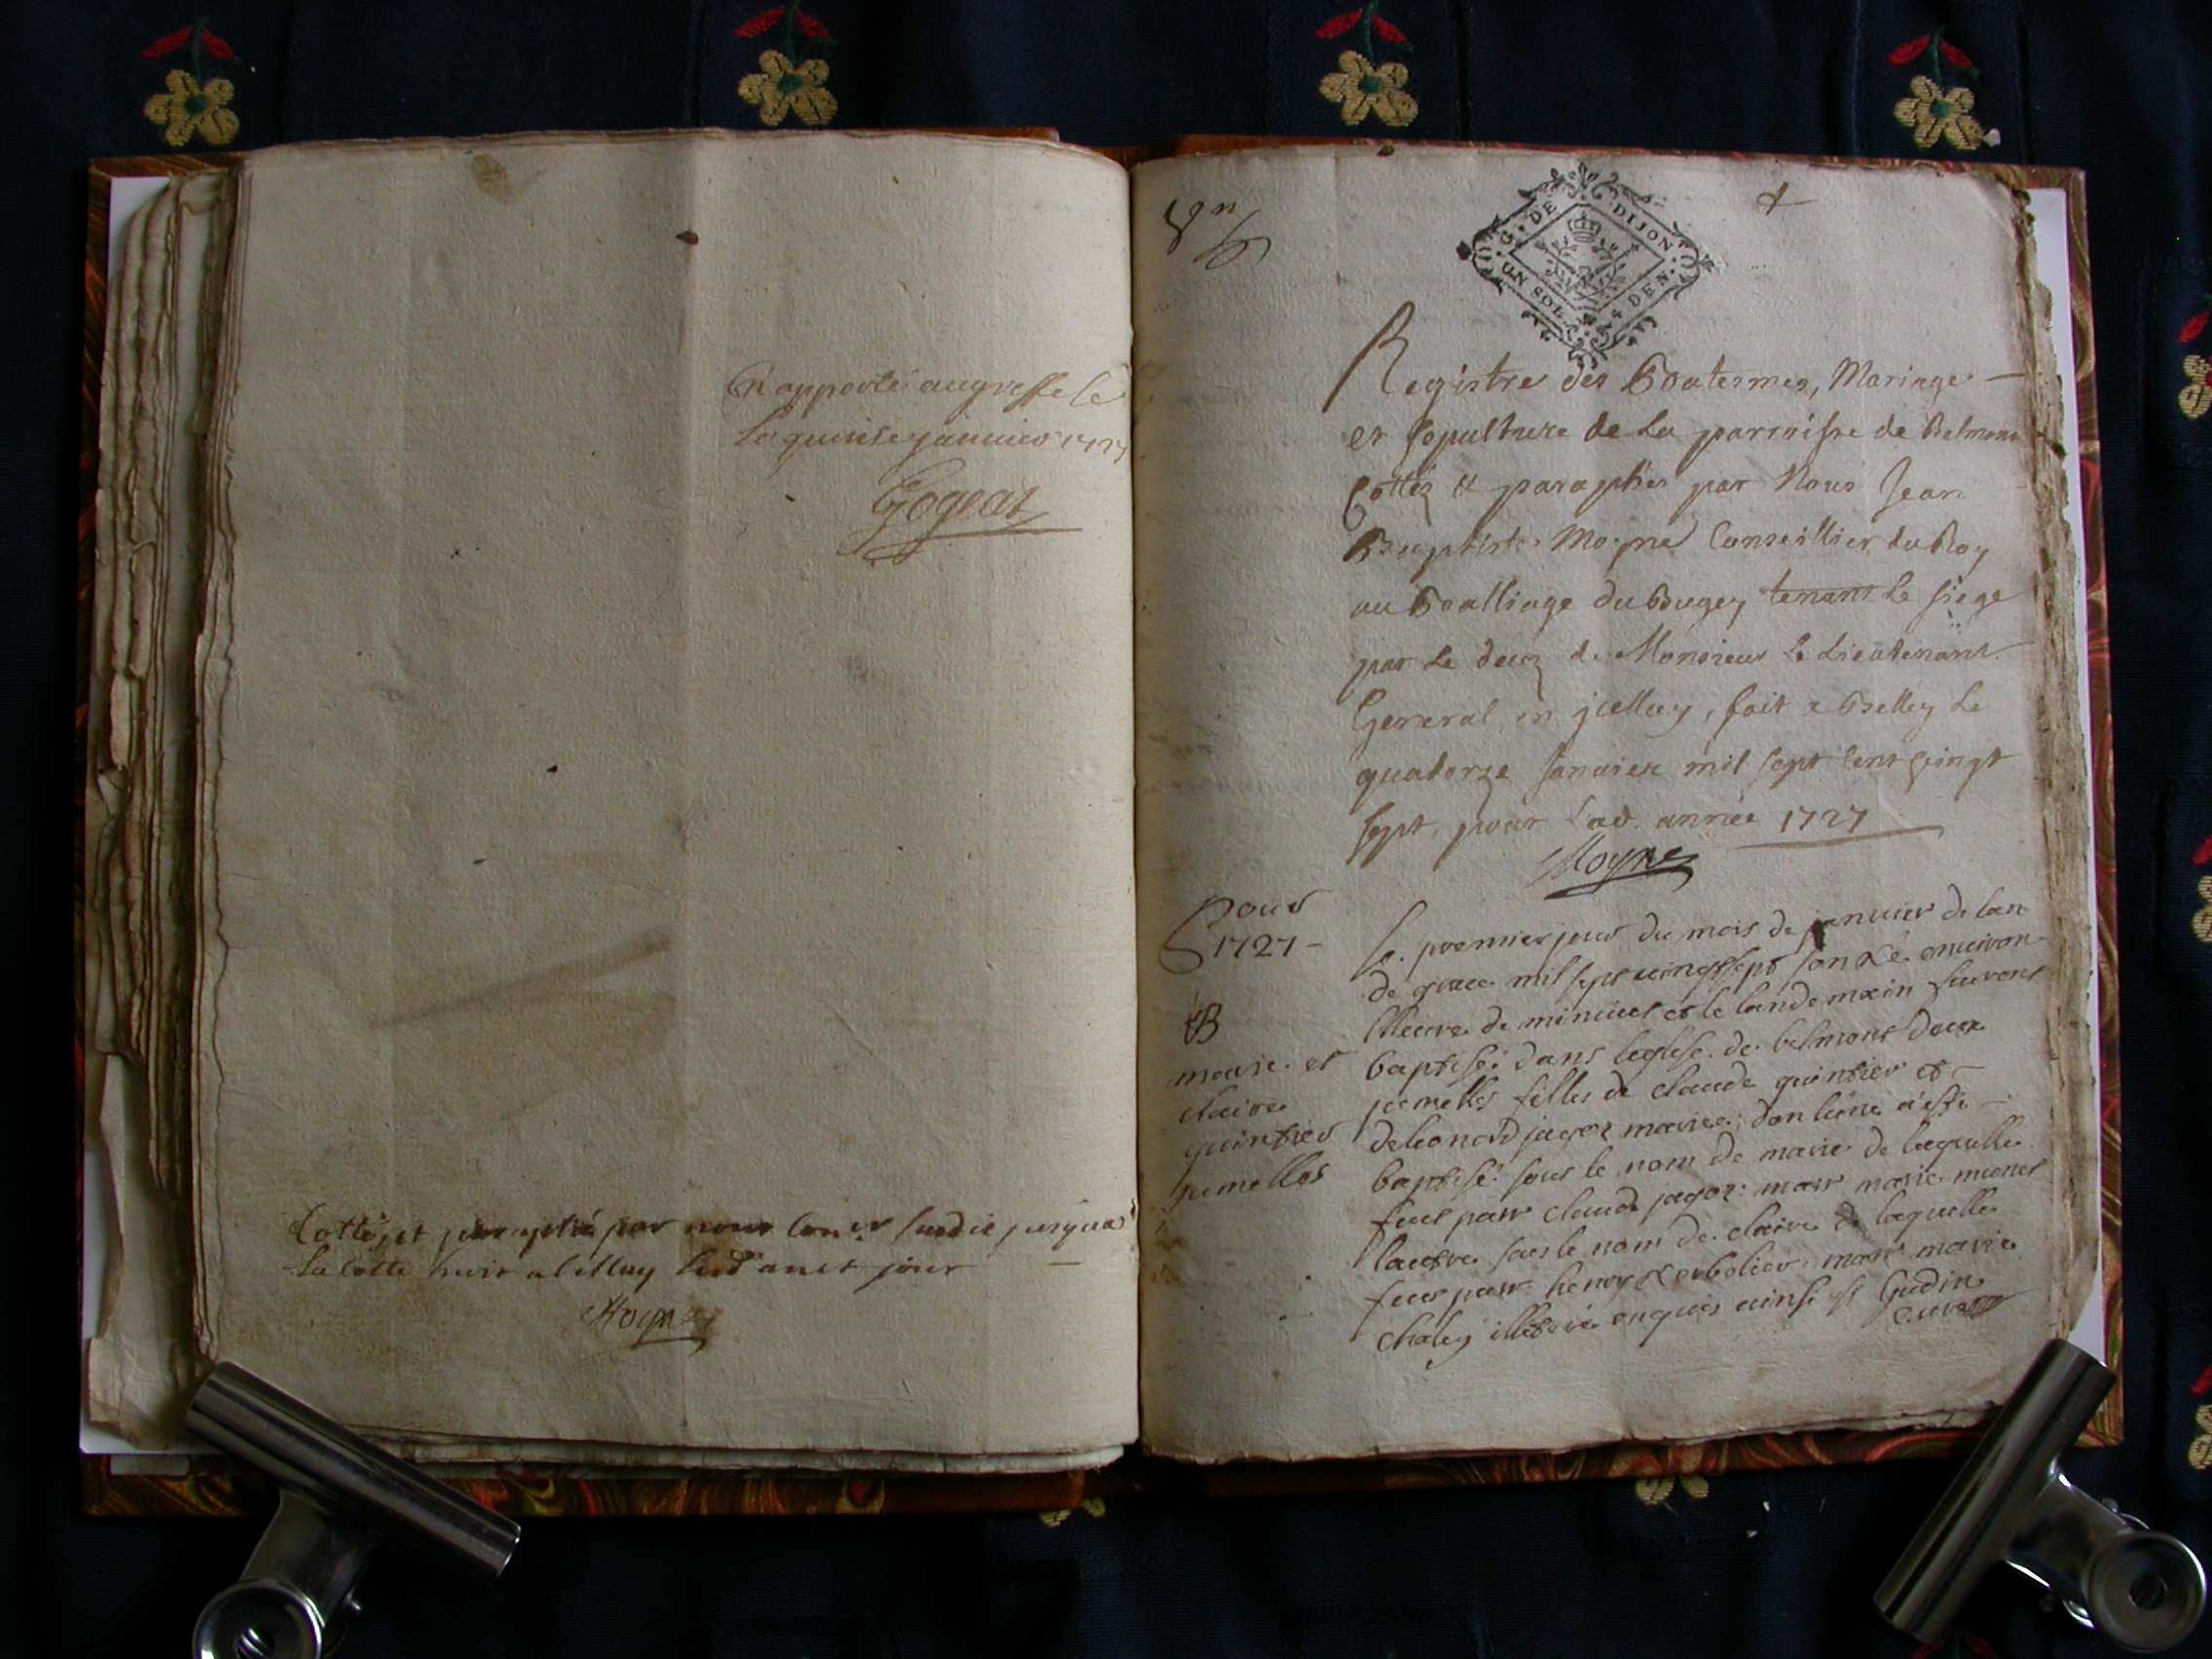 apporté au greffe le
le quinse janvier 1727
Cotté et paraphé par nous con.er susdit jusqua
la cotte huit
jour
Moyne
G. DE DIJON
UN SOL 4 DEN.
Registre des Baatesmes, Mariage
et sepulture de La parroisse de Belmont
Cottés & paraphés par Nous Jean
Baptiste Moyne Conseillier du Roy
au Bailliage du Bugey tenant Le siege
par Le decez de Monsieur Le Lieutenant
General en jcelluy, fait a Belley Le
quatorze Janvier mil sept Cent vingt
sept, pour Lad. année 1727
Moyne
pour
1727
B
marie et
claire
quintier
jumelles
Le premier jour du mois de janvier de lan
de grace mil sept vingt sept son né enuiron
lheure de minuict et le landemain suivant
baptisé dans leglise de belmont deux
jumelles filles de claude quintier et
de leonard jagoz mariee, don lune a esté
baptisé sous le nom de marie de laquelle
fut parr claude jagoz marr marie
lautre sous le nom de claire de laquelle
fut parr henry marr marie
chaley enquis ainsi est Gudin
curé